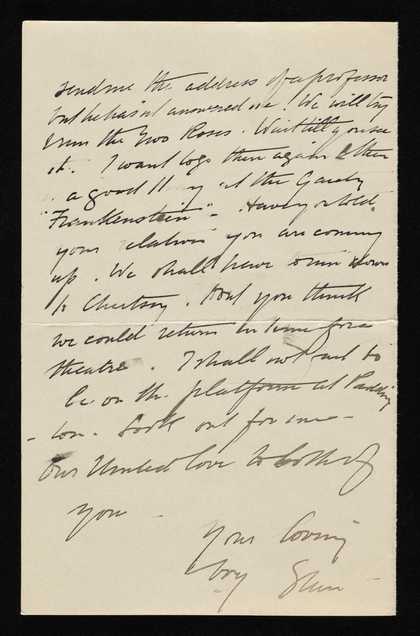 send me the address of a professor
but he hasnt answered me! We will try
the Two Roses. Wait till you see
it. I want to go there again &
a good at the Gaiety
"Frankenstein" - Have you told
your relations you are coming
up. We shall have down
to Chertsey. Dont you think
we could return in time for a
theatre. I shall to
be on the platform at Padding
-ton. Look out for me -
Our United love to both of
you
Your loving